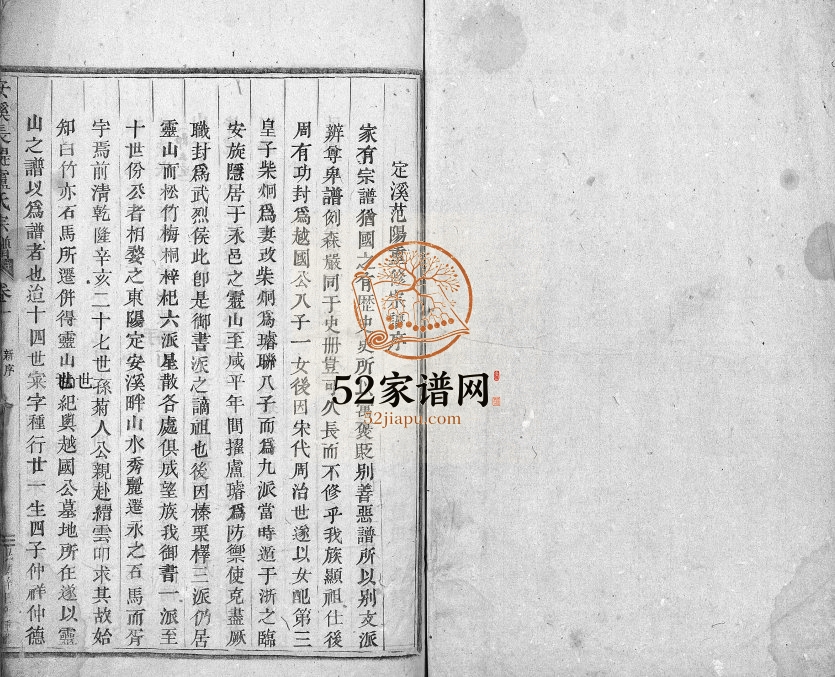 定溪范陽重修宗譜序
家有宗譜猶國之有歷史史所以寓褒貶别善惡譜所以别支派
辨尊卑譜例森嚴同于史册豈可久長而不修乎我族顯祖仕後
周有功封爲越國公八子一女後因宋代周治世遂以女配第三
皇子柴炯爲妻改柴炯爲璿聯八子而爲九派當時遁于浙之臨
安族隱居于永邑之靈山至咸平年間擢盧璿爲防禦使克盡厥
職封爲武烈侯此卽是御書派之謫祖也後因榛栗檡三派仍居
靈山而松竹梅桐梓杞六派星散各處俱成望族我御書一派至
十世份公者相婺之東陽定安溪畔山水秀麗遷永之石馬而胥
宇焉前清乾隆辛亥二十七世孫菊人公親赴縉雲叩求其故始
知白竹亦石馬所遷併得靈山世紀與越國公墓地所在遂以靈
山之譜以爲譜者也迨十四世寀字種行廿一生四子仲祥仲德
安溪長堤盧氏宗譜 卷一
新序
世
52家谱网
52jiapu.com